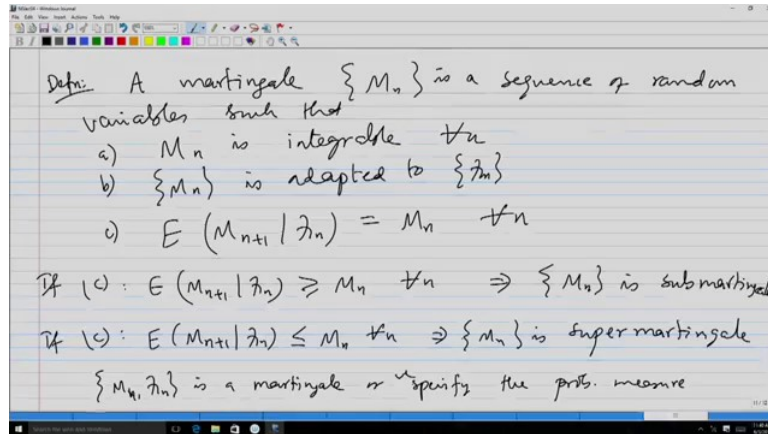 Note09 - Windows Journal
File Edit View Insert Actions Tools Help
Defn: A martingale {Mn} is a sequence of random
variables such that
a) Mn is integrable ∀n
b) {Mn} is adapted to {ℱn}
c) E (Mn+1 | ℱn) = Mn ∀n
If (c): E (Mn+1 | ℱn) ≥ Mn ∀n ⇒ {Mn} is submartingale
If (c): E (Mn+1 | ℱn) ≤ Mn ∀n ⇒ {Mn} is supermartingale
{Mn, ℱn} is a martingale or specify the prob. measure
Search the web and Windows